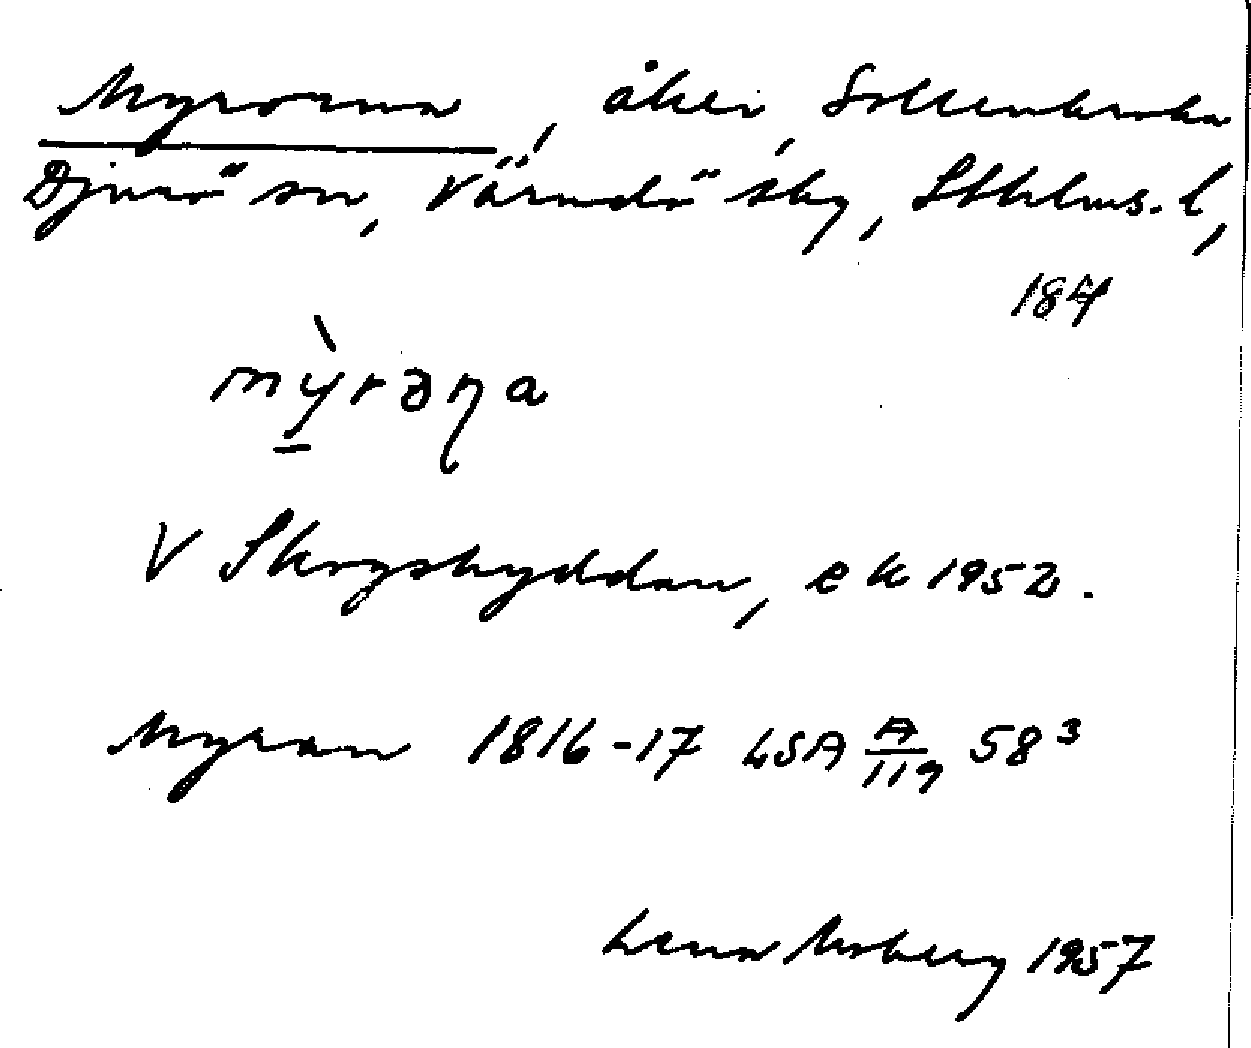 Myrorna, åker, Sollenkroka
Djurö sn, Värmdö skg, Sthlms. l,
184
mỳ̱rəηa
V Skogshyddan, ek 1952.
Myran 1816-17 LSA A/119 58³
Lena Moberg 1957